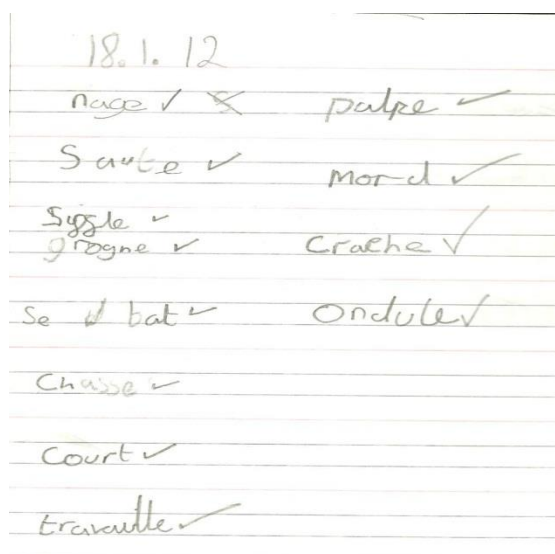 18.1.12
nage ✓
Saute ✓
Siggle ✓
grogne ✓
se bat ✓
Chasse ✓
Court ✓
travaille ✓
palpe ✓
mord ✓
Crache ✓
Ondule ✓